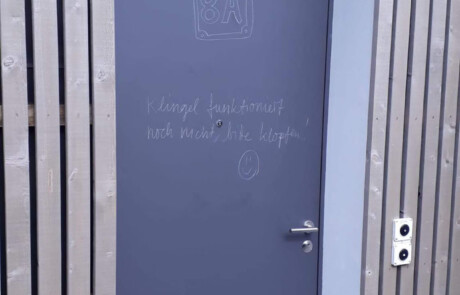 8A
Klingel funktioniert
noch nicht, bitte klopfen!